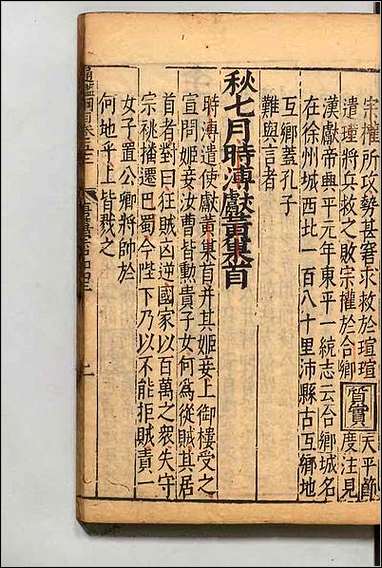 宗權所攻勢甚窘求救於瑄瑄
遣瑾將兵救之敗宗權於合鄉 質實 天平節
度注見
漢獻帝興平元年東平一統志云合鄉城名
在徐州城西北一百八十里沛縣古互鄉地
互鄉蓋孔子
難與言者
秋七月時溥獻黃巢首
時溥遣使獻黃巢首并其姬妾上御樓受之
宣問姬妾汝曹皆勲貴子女何為從賊其居
首者對曰狂賊凶逆國家以百萬之衆失守
宗祧播遷巴蜀今陛下乃以不能拒賊責一
女子置公卿將帥於
何地乎上皆戮之
通鑑綱目卷五十二